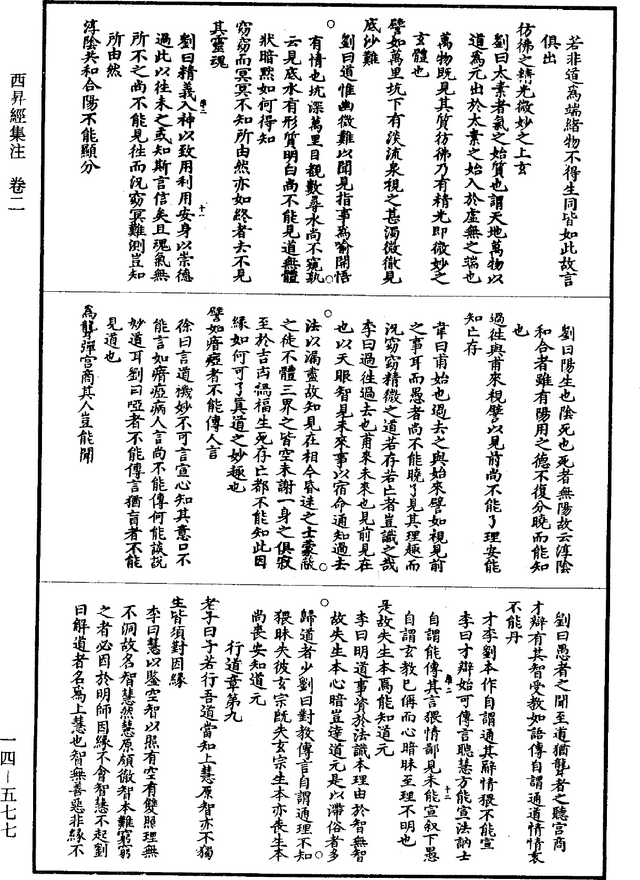 若非道為端緒物不得生同皆如此故言
俱出
彷彿之精光微妙之上玄
劉曰太素者氣之始質也謂天地萬物以
道為元出於太素之始入於虛無之端也
萬物既見其質彷彿乃有精光即微妙之
玄體也
譬如萬里坑下有淡流泉視之甚濁微徹見
底沙難
劉曰道惟幽微難以聞見指事為喻開悟
有情也坑深萬里目觀數尋水尚不窺孰
云見底水有形質明白尚不能見道無體
狀暗黙如何得知
窈窈而冥冥不知所由然亦如終者去不見
其靈魂
劉曰精義入神以致用利用安身以崇德
過此以往未之或知斯言信矣且魂氣無
所不之尚不能見徃而況窈冥難測豈知
所由然
淳陰共和合陽不能顯分
劉曰陽生也陰死也死者無陽故云淳陰
和合者雖有陽用之德不復分晚而能知
也
過徃與甫來視譬以見前尚不能了理安能
知亡存
韋曰甫始也過去之與始來譬如視見前
之事耳而愚者尚不能曉了見其理趣而
況窈窈精微之道若存若亡者豈識之哉
李曰過徃過去也甫來未來也見前見在
也以天眼智見未來事以宿命通知過去
法以漏盡故知見在相今昏迷之士蒙蔽
之徒不體三界之皆空未謝一身之俱寂
至於吉凶禍福生死存亡都不能知此因
緣如何可了真道之妙趣也
譬如瘖瘂者不能傳人言
徐曰言道機妙不可言宣心知其意口不
能言如瘖瘂病人言尚不能傳何能談說
妙道耳劉曰啞者不能傳言猶盲者不能
見道也
為聾彈宮商其人豈能聞
劉曰愚者之聞至道猶聾者之聽宮商
才辯有其智受教如語傳自謂通道情情衷
不能丹
才李劉本作自謂通其辭情猥不能宣
李曰才辯始可傳言聰慧方能宣法訥士
自謂能傳其言猥情鄙見未能宣叙下愚
自謂玄教已偁而心暗昧至理不明也
是故失生本焉能知道元
李曰明道事資於法識本理由於智無智
故失生本心暗豈達道元是以滯俗者多
歸道者少劉曰對教傳言自謂通理不知
猥昧失彼玄宗旣失玄宗生本亦喪生本
尚喪安知道元
行道章第九
老子曰子若行吾道當知上慧原智亦不獨
生皆須對因緣
李曰慧以鑒空智以照有空有雙照理無
不洞故名智慧然慧原頓微智本難窮窮
之者必因於明師因緣不會智慧不起劉
曰解道者名為上慧也智無善惡非緣不
西昇經集注　卷二
一四－五七七